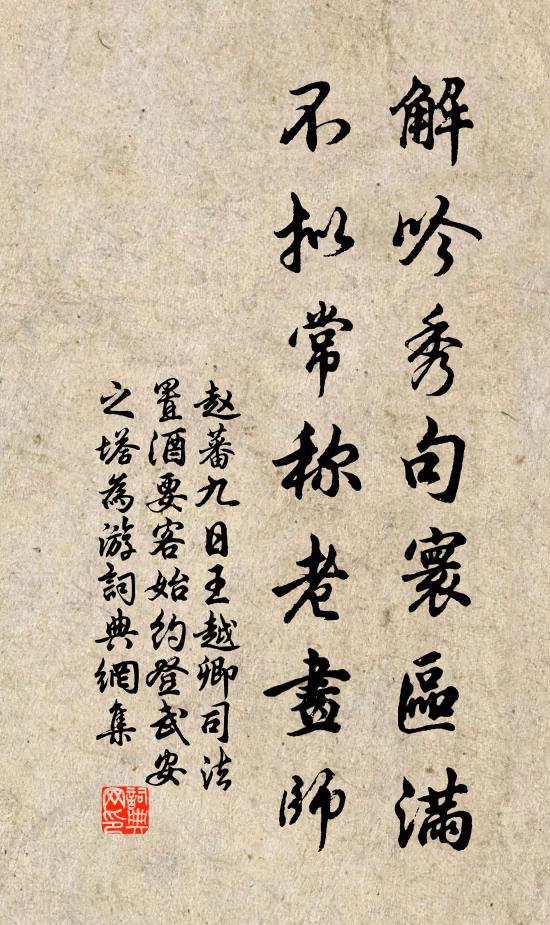 解吟秀句寰區滿
不拟常称老畫師
赵蕃九日王越卿司法
置酒要客始約登武安
之塔為游詞典網集
詞典网印